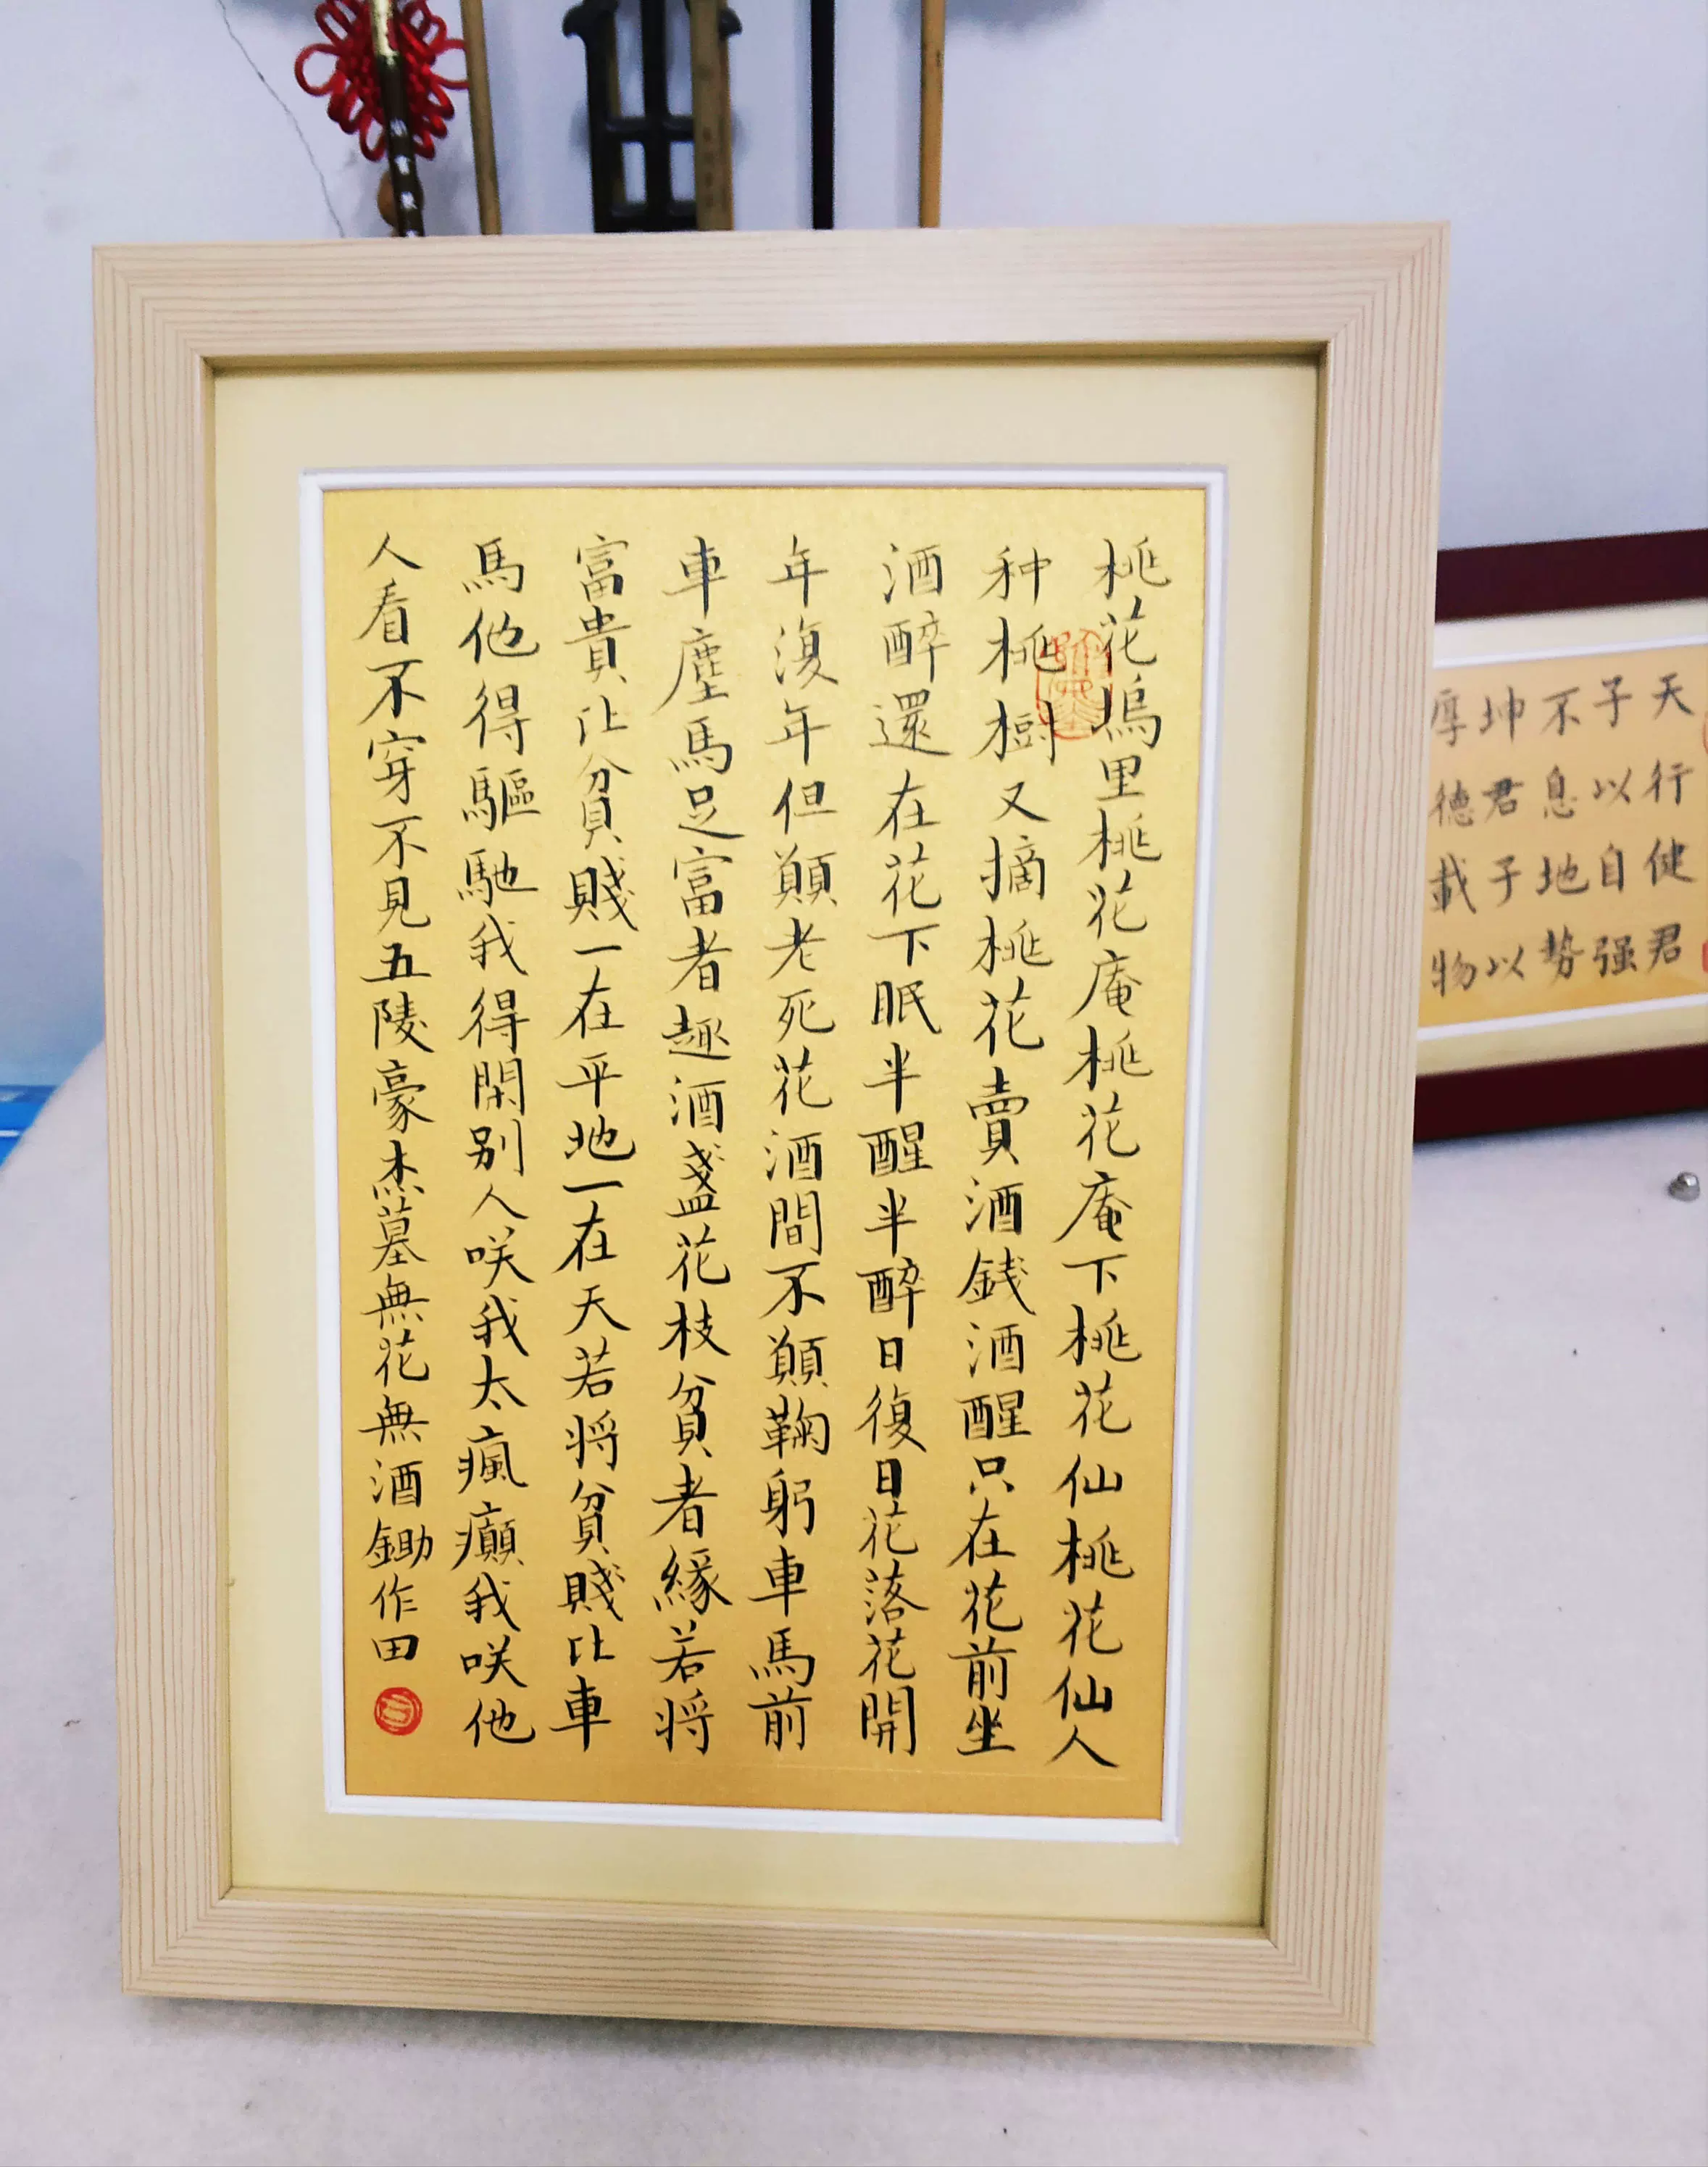 桃花塢里桃花庵桃花庵下桃花仙桃花仙人
种桃樹又摘桃花賣酒錢酒醒只在花前坐
酒醉還在花下眠半醒半醉日復日花落花開
年復年但顛老死花酒間不顛鞠躬車馬前
車塵馬足富者趣酒盞花枝貧者緣若將
富貴比貧賤一在平地一在天若將貧賤比車
馬他得驅馳我得閑别人咲我太瘋癲我咲他
人看不穿不見五陵豪杰墓無花無酒鋤作田
天行健君
子以自强
不息地势
坤君子以
厚德載物